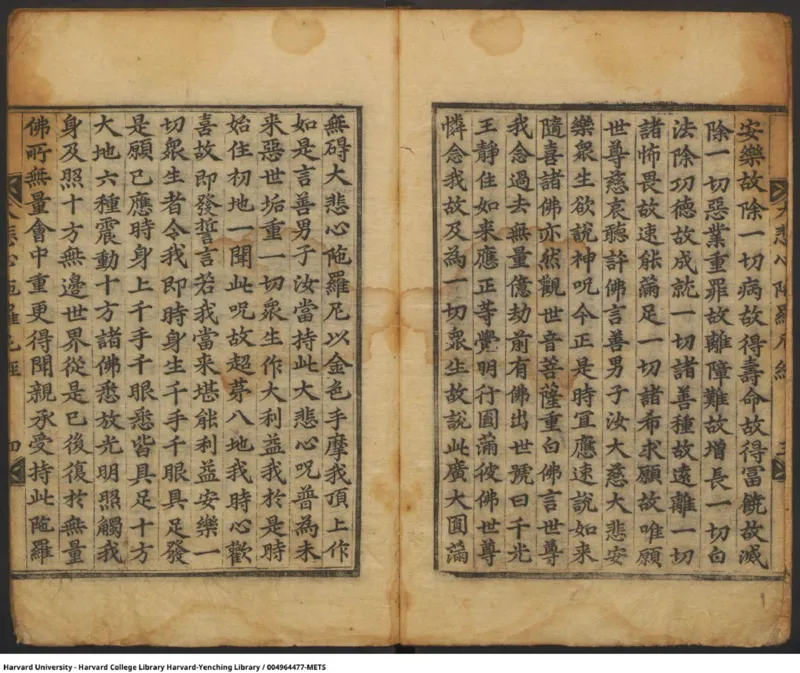 安樂故除一切病故得壽命故得冨饒故滅
除一切惡業重罪故離障難故增長一切白
法除功德故成就一切諸善種故遠離一切
諸怖畏故速能滿足一切諸希求願故唯願
世尊慈哀聽許佛言善男子汝大慈大悲安
樂衆生欲說神呪今正是時冝應速說如来
隨喜諸佛亦然觀世音菩薩重白佛言世尊
我念過去無量億劫前有佛出世號曰千光
王靜住如来應正等覺明行圓滿彼佛世尊
憐念我故及為一切衆生故說此廣大圓滿
無碍大悲心陁羅尼以金色手摩我頂上作
如是言善男子汝當持此大悲心呪普為未
来惡世垢重一切衆生作大利益我於是時
始住初地一聞此呪故超苐八地我時心歡
喜故即發誓言若我當来堪能利益安樂一
切衆生者令我即時身生千手千眼具足發
是願已應時身上千手千眼悉皆具足十方
大地六種震動十方諸佛悉放光明照觸我
身及照十方無邊世界從是已後復於無量
佛所無量會中重更得聞親承受持此陁羅
大悲心陁羅尼經 三
大悲心陁羅尼經 四
Harvard University - Harvard College Library Harvard-Yenching Library / 004964477-METS